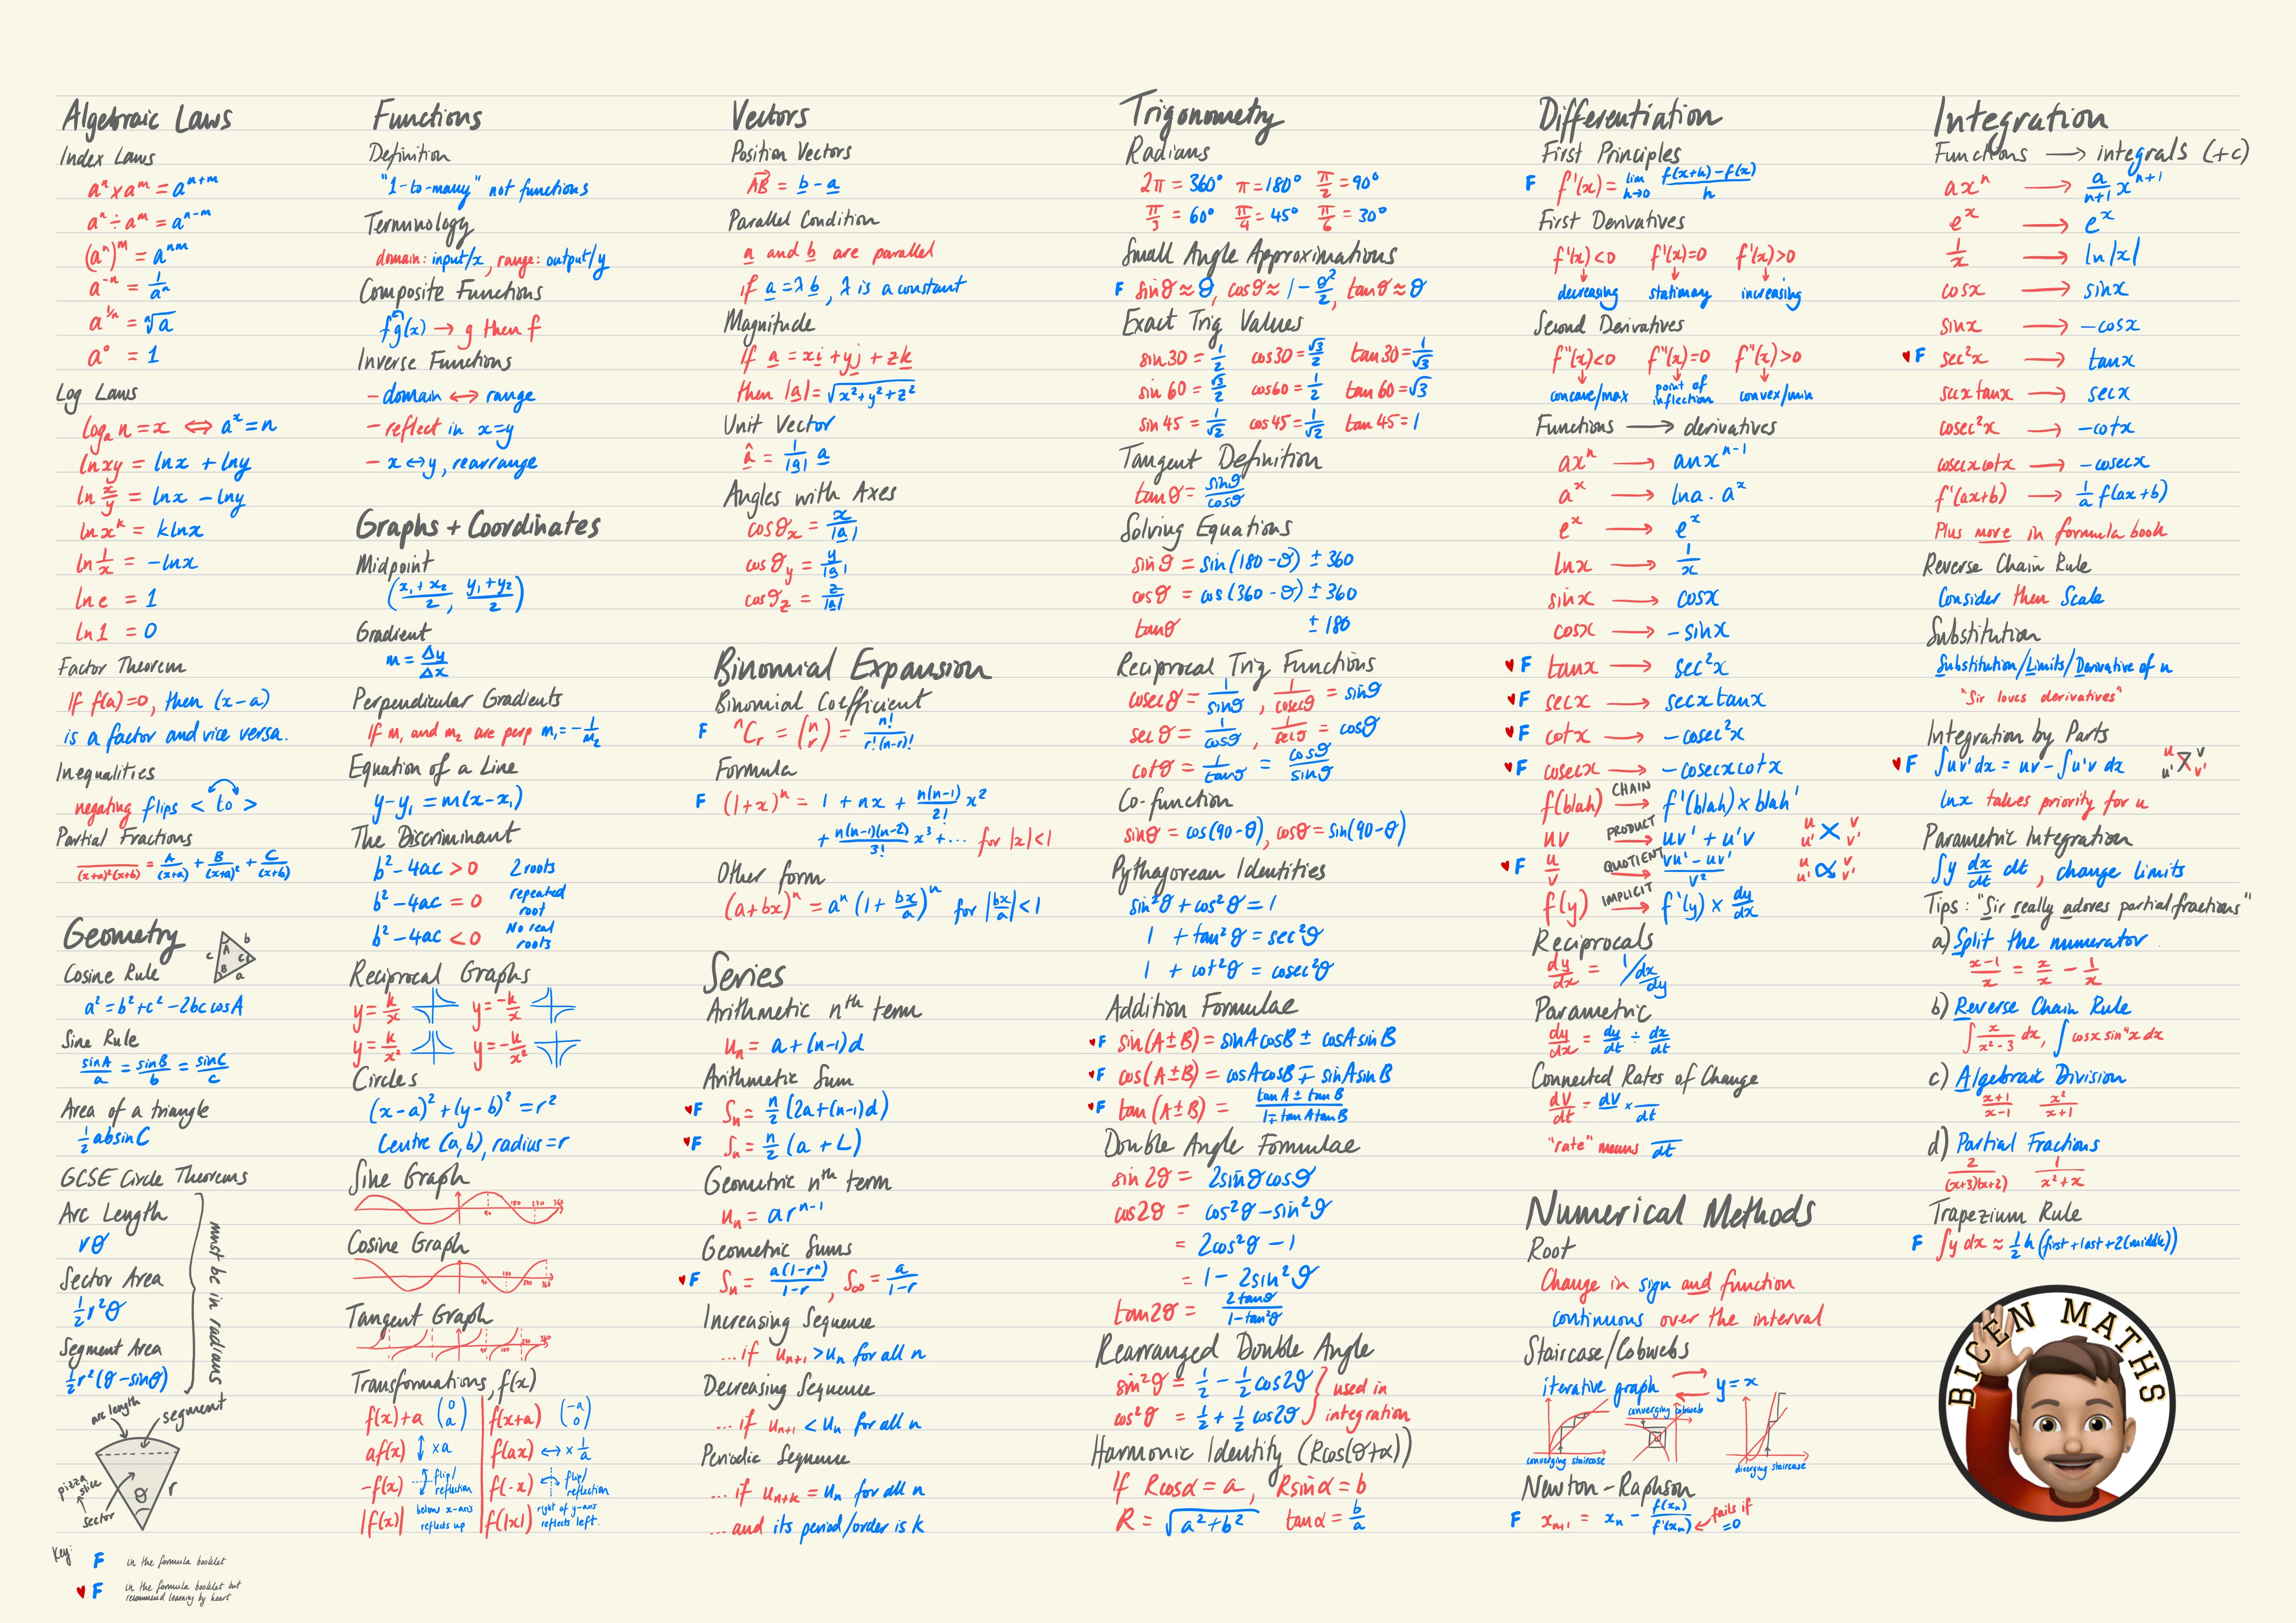 Algebraic Laws
Index Laws
aⁿ × aᵐ = aⁿ⁺ᵐ
aⁿ ÷ aᵐ = aⁿ⁻ᵐ
(aⁿ)ᵐ = aⁿᵐ
a⁻ⁿ = 1/aⁿ
a^(1/n) = ⁿ√a
a⁰ = 1
Log Laws
logₐ n = x ⇔ aˣ = n
lnxy = lnx + lny
ln x/y = lnx − lny
lnxᵏ = klnx
ln 1/x = −lnx
lne = 1
ln1 = 0
Factor Theorem
If f(a)=0, then (x−a)
is a factor and vice versa.
Inequalities
negating flips < to >
Partial Fractions
/(x+a)²(x+b) = A/(x+a) + B/(x+a)² + C/(x+b)
Geometry
A b c C B a
Cosine Rule
a² = b² + c² − 2bc cosA
Sine Rule
sinA/a = sinB/b = sinC/c
Area of a triangle
½absinC
GCSE Circle Theorems
Arc Length
rθ
Sector Area
½r²θ
Segment Area
½r²(θ − sinθ)
must be in radians
arc length
segment
pizza slice
sector
θ
r
Key:
F in the formula booklet
♥F in the formula booklet but
recommend learning by heart
Functions
Definition
"1-to-many" not functions
Terminology
domain: input/x, range: output/y
Composite Functions
fg(x) → g then f
Inverse Functions
− domain ↔ range
− reflect in x=y
− x ↔ y, rearrange
Graphs + Coordinates
Midpoint
((x₁+x₂)/2, (y₁+y₂)/2)
Gradient
m = Δy/Δx
Perpendicular Gradients
If m₁ and m₂ are perp m₁ = −1/m₂
Equation of a Line
y−y₁ = m(x−x₁)
The Discriminant
b²−4ac > 0 2 roots
b²−4ac = 0 repeated root
b²−4ac < 0 No real roots
Reciprocal Graphs
y = k/x y = −k/x
y = k/x² y = −k/x²
Circles
(x−a)² + (y−b)² = r²
Centre (a,b), radius = r
Sine Graph
90 180 270 360
Cosine Graph
90 180 270 360
Tangent Graph
90 180 270 360
Transformations, f(x)
f(x)+a (0 a) f(x+a) (−a 0)
af(x) ↕ ×a f(ax) ↔ × 1/a
−f(x) flip/reflection f(−x) flip/reflection
|f(x)| below x-axis reflects up f(|x|) right of y-axis reflects left.
Vectors
Position Vectors
AB = b − a
Parallel Condition
a and b are parallel
if a = λb, λ is a constant
Magnitude
If a = xi + yj + zk
then |a| = √(x²+y²+z²)
Unit Vector
â = 1/|a| a
Angles with Axes
cosθₓ = x/|a|
cosθ_y = y/|a|
cosθ_z = z/|a|
Binomial Expansion
Binomial Coefficient
F ⁿCᵣ = (n r) = n!/r!(n−r)!
Formula
F (1+x)ⁿ = 1 + nx + n(n−1)/2! x²
+ n(n−1)(n−2)/3! x³ + ... for |x|<1
Other form
(a+bx)ⁿ = aⁿ(1 + bx/a)ⁿ for |bx/a|<1
Series
Arithmetic nᵗʰ term
uₙ = a + (n−1)d
Arithmetic Sum
♥F Sₙ = n/2 (2a+(n−1)d)
♥F Sₙ = n/2 (a + L)
Geometric nᵗʰ term
uₙ = arⁿ⁻¹
Geometric Sums
♥F Sₙ = a(1−rⁿ)/1−r, S∞ = a/1−r
Increasing Sequence
... if uₙ₊₁ > uₙ for all n
Decreasing Sequence
... if uₙ₊₁ < uₙ for all n
Periodic Sequence
... if uₙ₊ₖ = uₙ for all n
... and its period/order is k
Trigonometry
Radians
2π = 360° π = 180° π/2 = 90°
π/3 = 60° π/4 = 45° π/6 = 30°
Small Angle Approximations
F sinθ ≈ θ, cosθ ≈ 1 − θ²/2, tanθ ≈ θ
Exact Trig Values
sin30 = 1/2 cos30 = √3/2 tan30 = 1/√3
sin60 = √3/2 cos60 = 1/2 tan60 = √3
sin45 = 1/√2 cos45 = 1/√2 tan45 = 1
Tangent Definition
tanθ = sinθ/cosθ
Solving Equations
sinθ = sin(180−θ) ± 360
cosθ = cos(360−θ) ± 360
tanθ ± 180
Reciprocal Trig Functions
cosecθ = 1/sinθ, 1/cosecθ = sinθ
secθ = 1/cosθ, 1/secθ = cosθ
cotθ = 1/tanθ = cosθ/sinθ
Co-function
sinθ = cos(90−θ), cosθ = sin(90−θ)
Pythagorean Identities
sin²θ + cos²θ = 1
1 + tan²θ = sec²θ
1 + cot²θ = cosec²θ
Addition Formulae
♥F sin(A±B) = sinAcosB ± cosAsinB
♥F cos(A±B) = cosAcosB ∓ sinAsinB
♥F tan(A±B) = tanA ± tanB/1∓tanAtanB
Double Angle Formulae
sin2θ = 2sinθcosθ
cos2θ = cos²θ − sin²θ
= 2cos²θ − 1
= 1 − 2sin²θ
tan2θ = 2tanθ/1−tan²θ
Rearranged Double Angle
sin²θ = ½ − ½cos2θ } used in
cos²θ = ½ + ½cos2θ } integration
Harmonic Identity (Rcos(θ+α))
If Rcosα = a, Rsinα = b
R = √(a²+b²) tanα = b/a
Differentiation
First Principles
F f'(x) = lim h→0 f(x+h)−f(x)/h
First Derivatives
f'(x)<0 f'(x)=0 f'(x)>0
decreasing stationary increasing
Second Derivatives
f''(x)<0 f''(x)=0 f''(x)>0
concave/max point of inflection convex/min
Functions → derivatives
axⁿ → anxⁿ⁻¹
aˣ → lna . aˣ
eˣ → eˣ
lnx → 1/x
sinx → cosx
cosx → −sinx
♥F tanx → sec²x
♥F secx → secxtanx
♥F cotx → −cosec²x
♥F cosecx → −cosecxcotx
f(blah) CHAIN → f'(blah) × blah'
uv PRODUCT → uv' + u'v u v u' v'
♥F u/v QUOTIENT → vu' − uv'/v² u v u' v'
f(y) IMPLICIT → f'(y) × dy/dx
Reciprocals
dy/dx = 1/dx/dy
Parametric
dy/dx = dy/dt ÷ dx/dt
Connected Rates of Change
dV/dt = dV/ × /dt
"rate" means /dt
Numerical Methods
Root
Change in sign and function
continuous over the interval
Staircase/Cobwebs
iterative graph ⇄ y = x
converging staircase
converging cobweb
diverging staircase
Newton-Raphson
F xₙ₊₁ = xₙ − f(xₙ)/f'(xₙ) ← fails if =0
Integration
Functions → integrals (+c)
axⁿ → a/n+1 xⁿ⁺¹
eˣ → eˣ
1/x → ln|x|
cosx → sinx
sinx → −cosx
♥F sec²x → tanx
secxtanx → secx
cosec²x → −cotx
cosecxcotx → −cosecx
f'(ax+b) → 1/a f(ax+b)
Plus more in formula book
Reverse Chain Rule
Consider then Scale
Substitution
Substitution/Limits/Derivative of u
"Sir loves derivatives"
Integration by Parts
♥F ∫uv'dx = uv − ∫u'v dx u v u' v'
lnx takes priority for u
Parametric Integration
∫y dx/dt dt, change limits
Tips: "Sir really adores partial fractions"
a) Split the numerator
x−1/x = x/x − 1/x
b) Reverse Chain Rule
∫ x/x²−3 dx, ∫ cosx sin⁴x dx
c) Algebraic Division
x+1/x−1 x²/x+1
d) Partial Fractions
2/(x+3)(x+2) 1/x²+x
Trapezium Rule
F ∫y dx ≈ ½h(first+last+2(middle))
BICEN MATHS